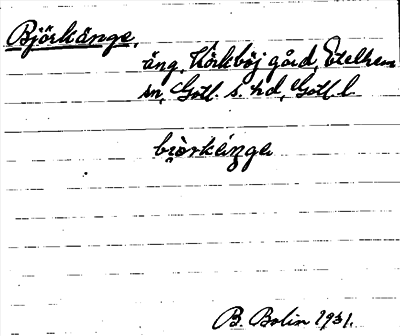 Björkänge,
äng, Hörkböj gård, Etelhem
sn, Gotl. s. hd, Gotl. l.
bi̯ȯrkänga
B. Bolin 1931.